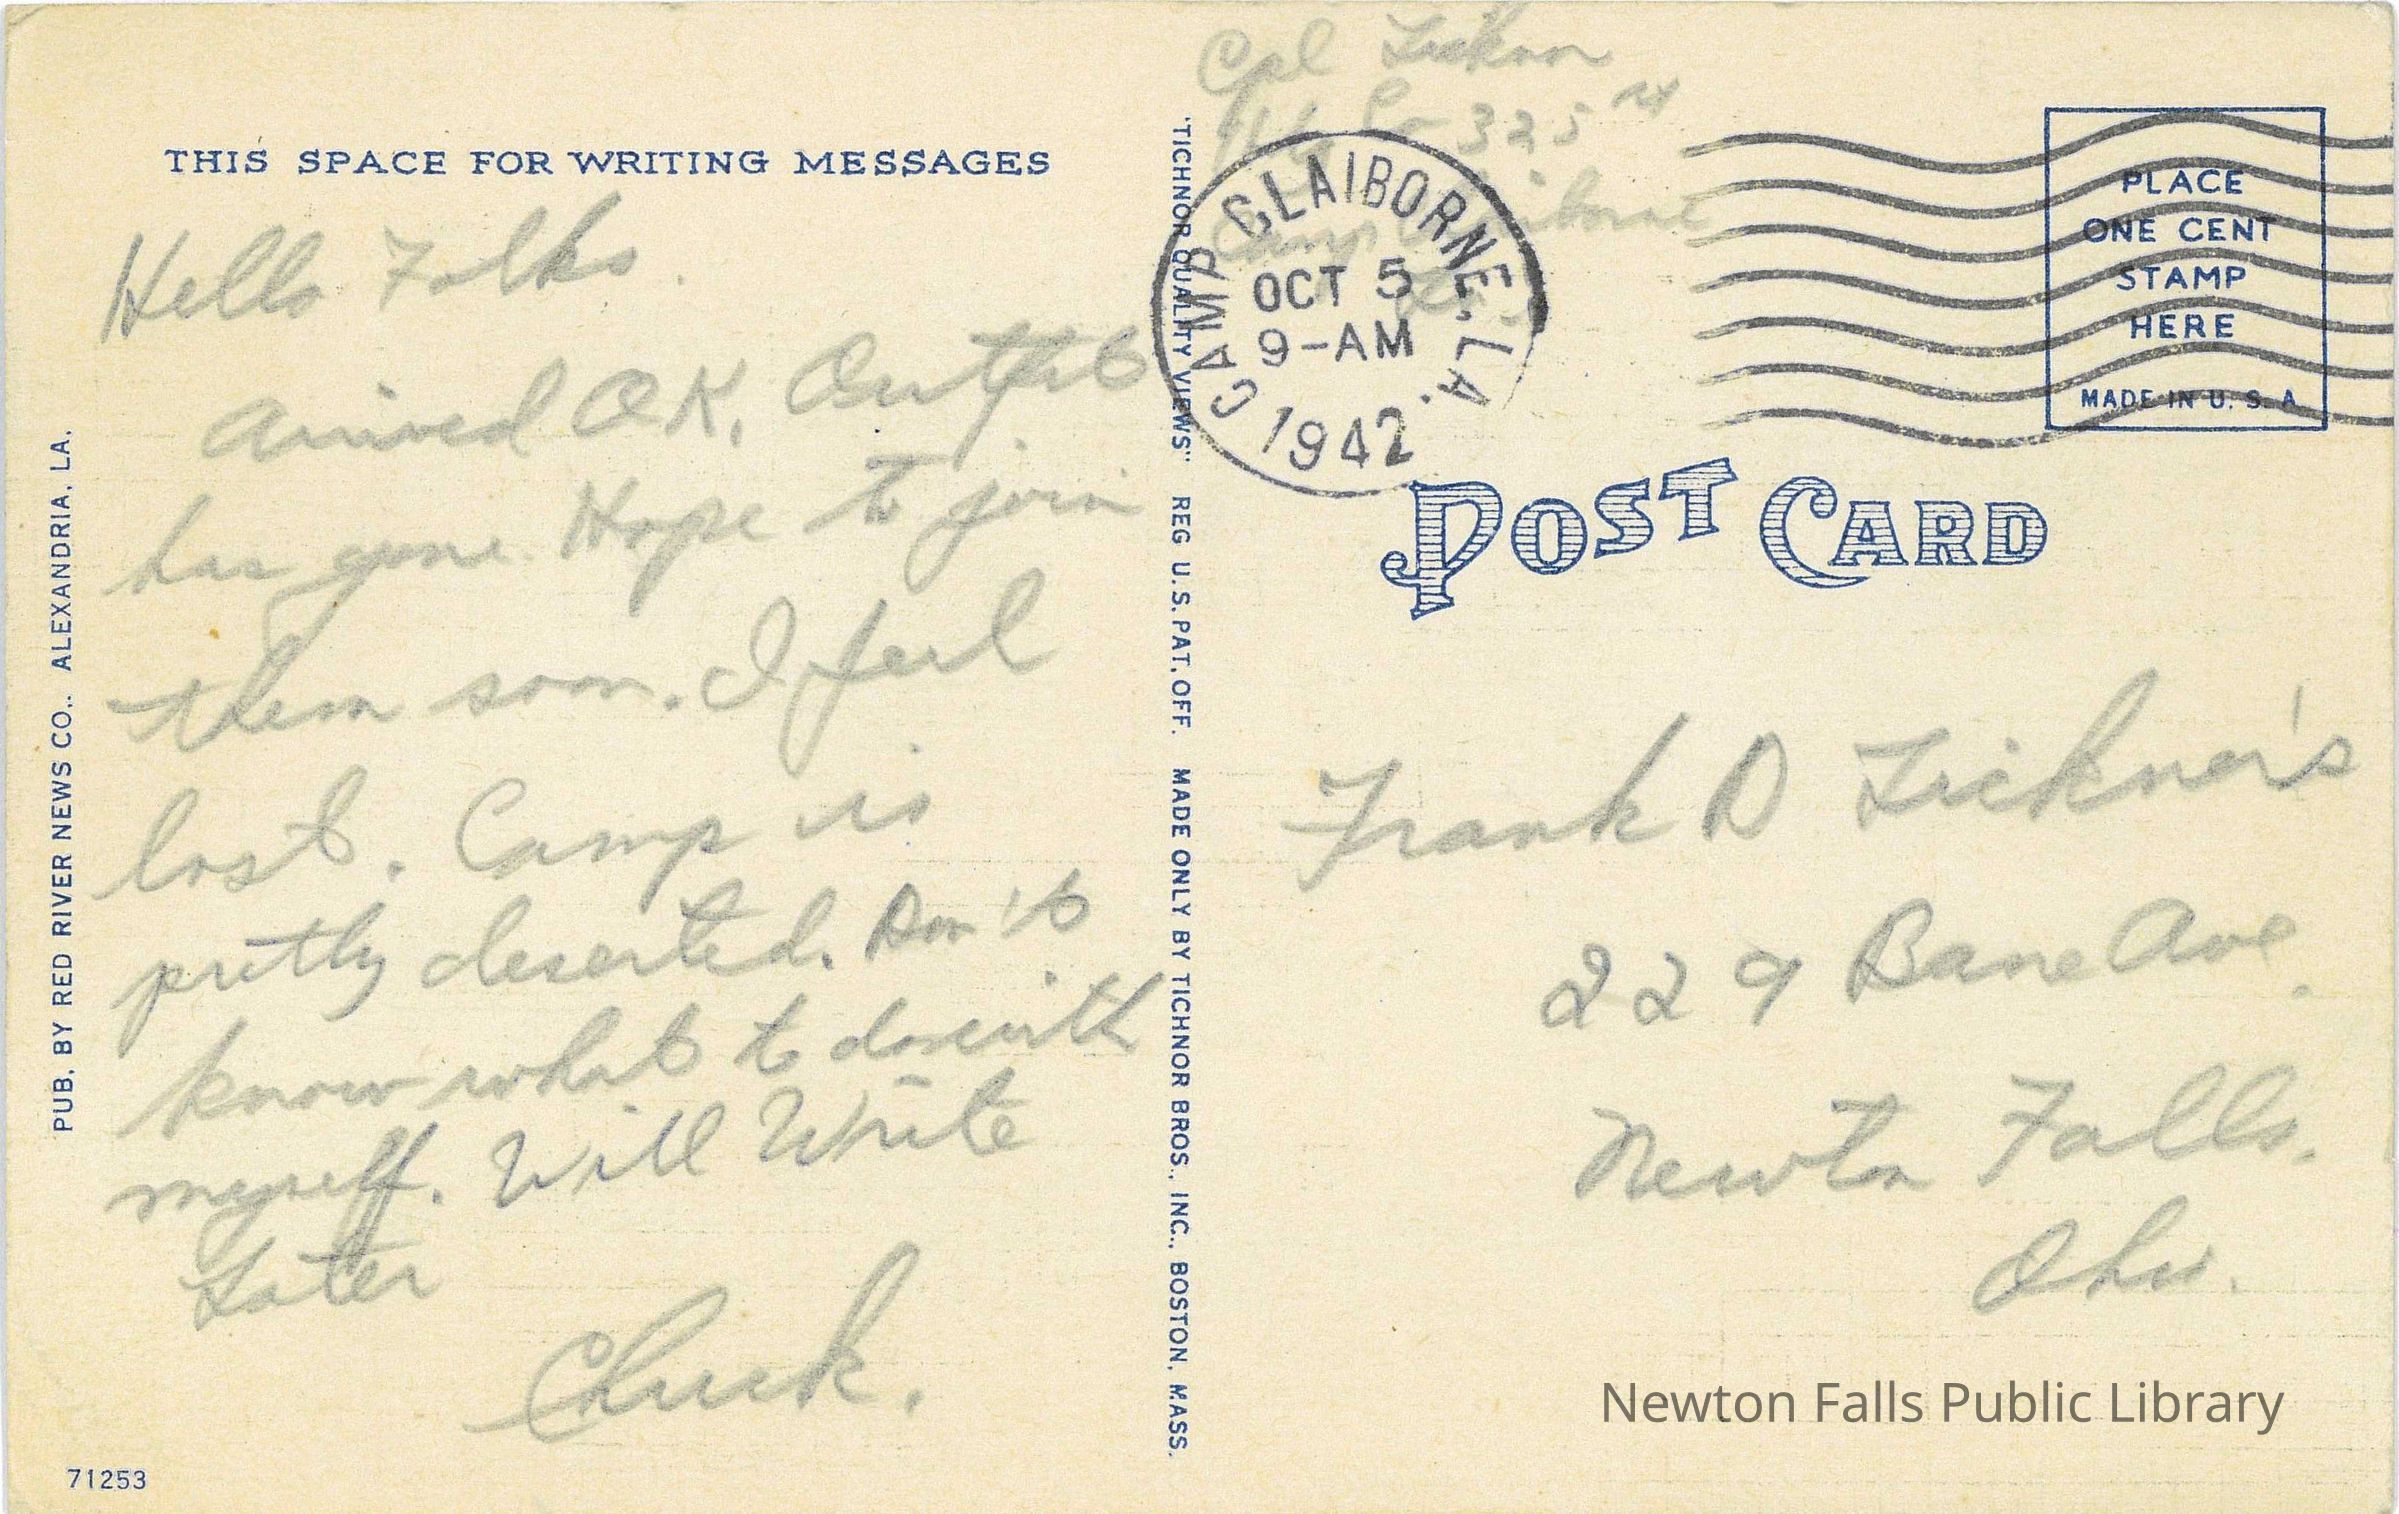 THIS SPACE FOR WRITING MESSAGES
Hello Folks.
Arrived OK. Outfit
has gone. Hope to join
them soon. I feel
lost. Camp is
pretty deserted. Don't
know what to do with
myself. Will Write
Later
Chuck.
71253
PUB. BY RED RIVER NEWS CO., ALEXANDRIA, LA.
"TICHNOR QUALITY VIEWS" REG. U.S. PAT. OFF. MADE ONLY BY TICHNOR BROS., INC., BOSTON, MASS.
Cpl Tickner
Co 325
Camp Claiborne
La.
CAMP CLAIBORNE, LA.
OCT 5
9-AM
1942
PLACE
ONE CENT
STAMP
HERE
MADE IN U. S. A.
POST CARD
Frank D Tickner's
229 Bane Ave.
Newton Falls.
Ohio.
Newton Falls Public Library